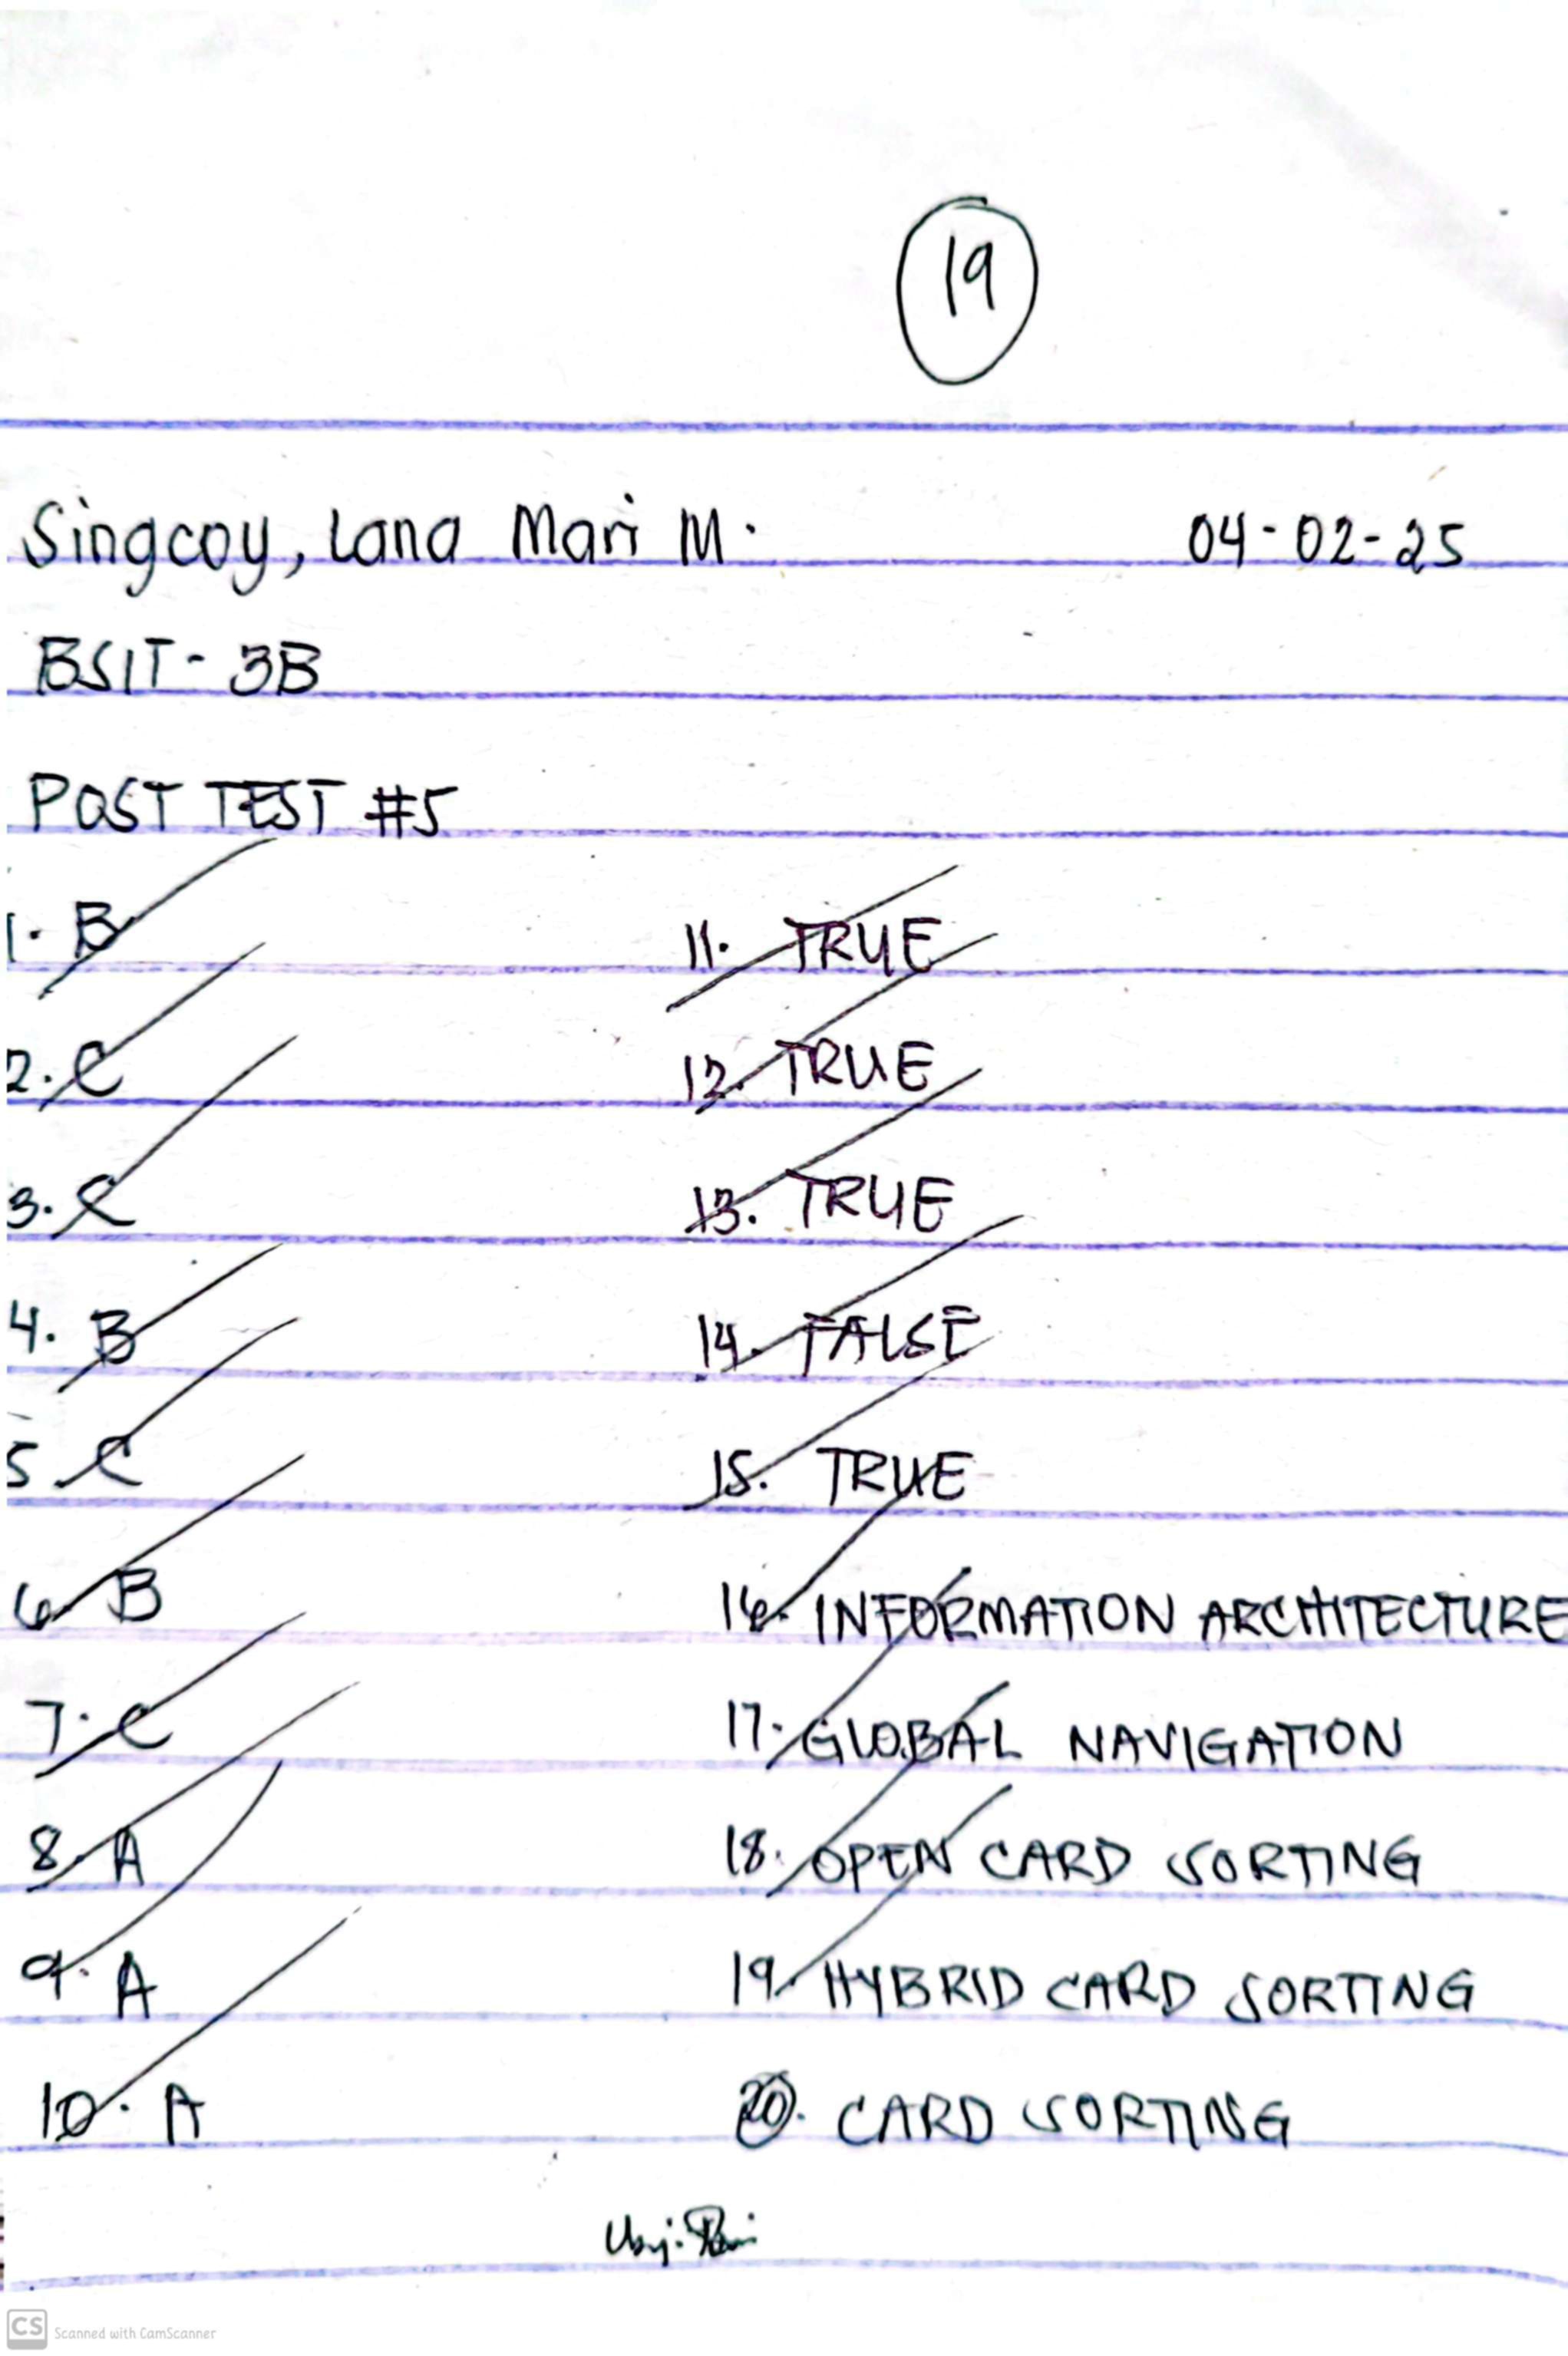 19
Singcoy, Lana Mari M.
04-02-25
BSIT- 3B
POST TEST #5
1. B
2. C
3. C
4. B
5 C
6. B
7. C
8. A
9. A
10. A
11. TRUE
12. TRUE
13. TRUE
14. FALSE
15. TRUE
16. INFORMATION ARCHITECTURE
17. GLOBAL NAVIGATION
18. OPEN CARD SORTING
19. HYBRID CARD SORTING
20. CARD SORTING
CS Scanned with CamScanner